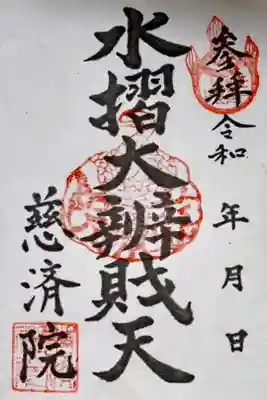 参拜
令和　年　月　日
水摺大辨財天
慈済院